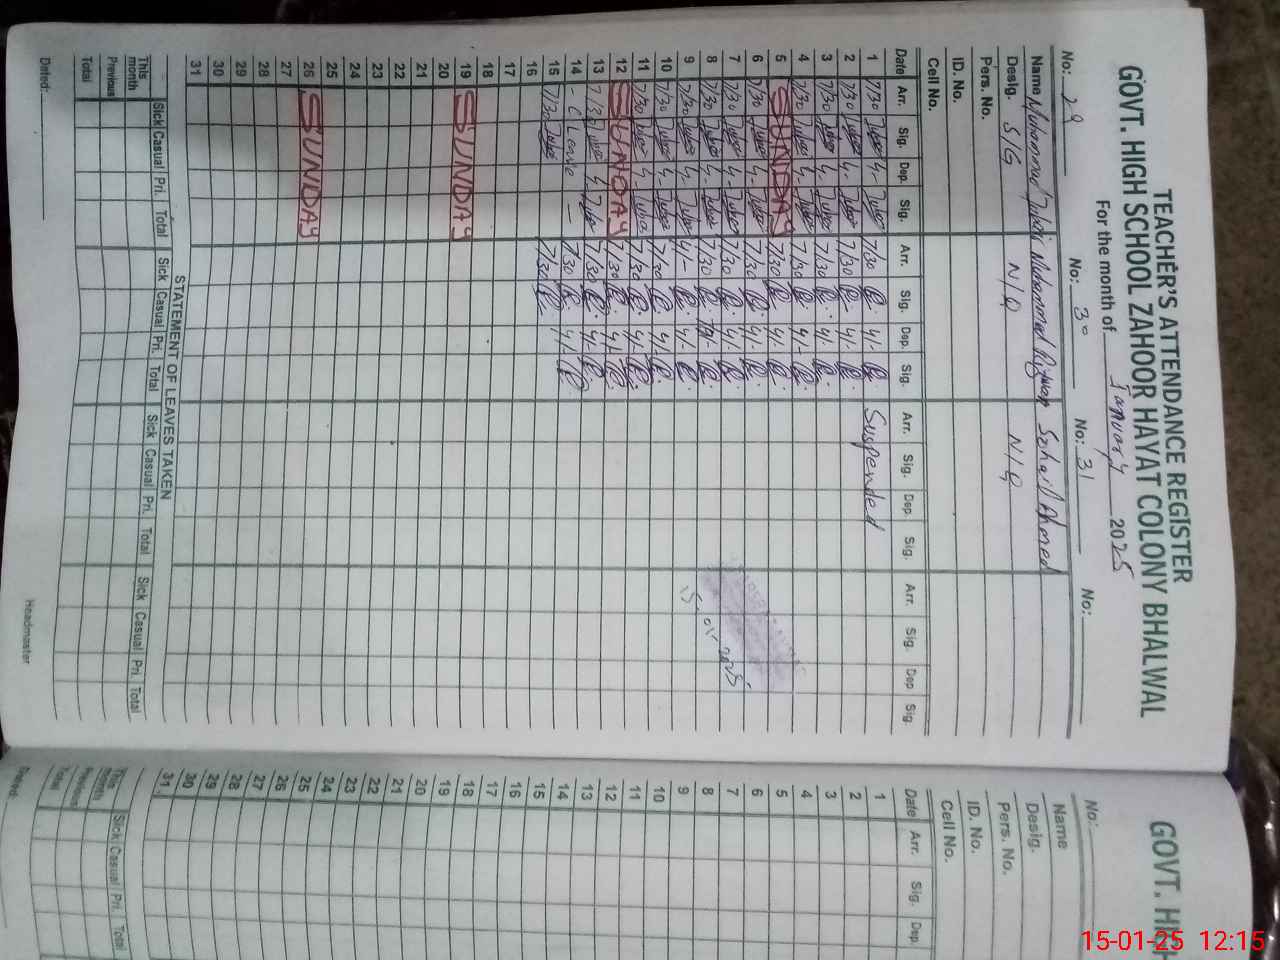 TEACHER'S ATTENDANCE REGISTER
GOVT. HIGH SCHOOL ZAHOOR HAYAT COLONY BHALWAL
For the month of January 2025
No: 29 No: 30 No: 31 No:
Name Muhammad Muhammad Rizwan Sohail Ahmed
Desig. S/G N/Q N/Q
Pers. No.
ID. No.
Cell No.
Date Arr. Sig. Dep. Sig. Arr. Sig. Dep. Sig. Arr. Sig. Dep. Sig. Arr. Sig. Dep Sig.
1 7/30 4- 7/30 4/- Suspended
2 7/30 4- 7/30 4/-
3 7/30 4- 7/30 4/-
4 7/30 4- 7/30 4/-
5 SUNDAY 7/30 4/-
6 7/30 4- 7/30 4/-
7 7/30 4- 7/30 4/-
8 7/30 4- 7/30
9 7/30 4- 4/- 4/-
10 7/30 4- 7/30 4/-
11 7/30 4- 7/30 4/-
12 SUNDAY 7/30 4/-
13 7/30 4 7/30 4/-
14 - C Leave - 7/30 4/-
15 7/30 7/30 4/-
16
17
18
19 SUNDAY
20
21
22
23
24
25
26 SUNDAY
27
28
29
30
31
15-01-2025
STATEMENT OF LEAVES TAKEN
This month Sick Casual Pri. Total Sick Casual Pri. Total Sick Casual Pri. Total Sick Casual Pri. Total
Previous
Total
Dated: Headmaster
GOVT. HIGH
No:
Name
Desig.
Pers. No.
ID. No.
Cell No.
Date Arr. Sig. Dep.
1
2
3
4
5
6
7
8
9
10
11
12
13
14
15
16
17
18
19
20
21
22
23
24
25
26
27
28
29
30
31
This month Sick Casual Pri. Total
Previous
Total
Dated:
15-01-25 12:15